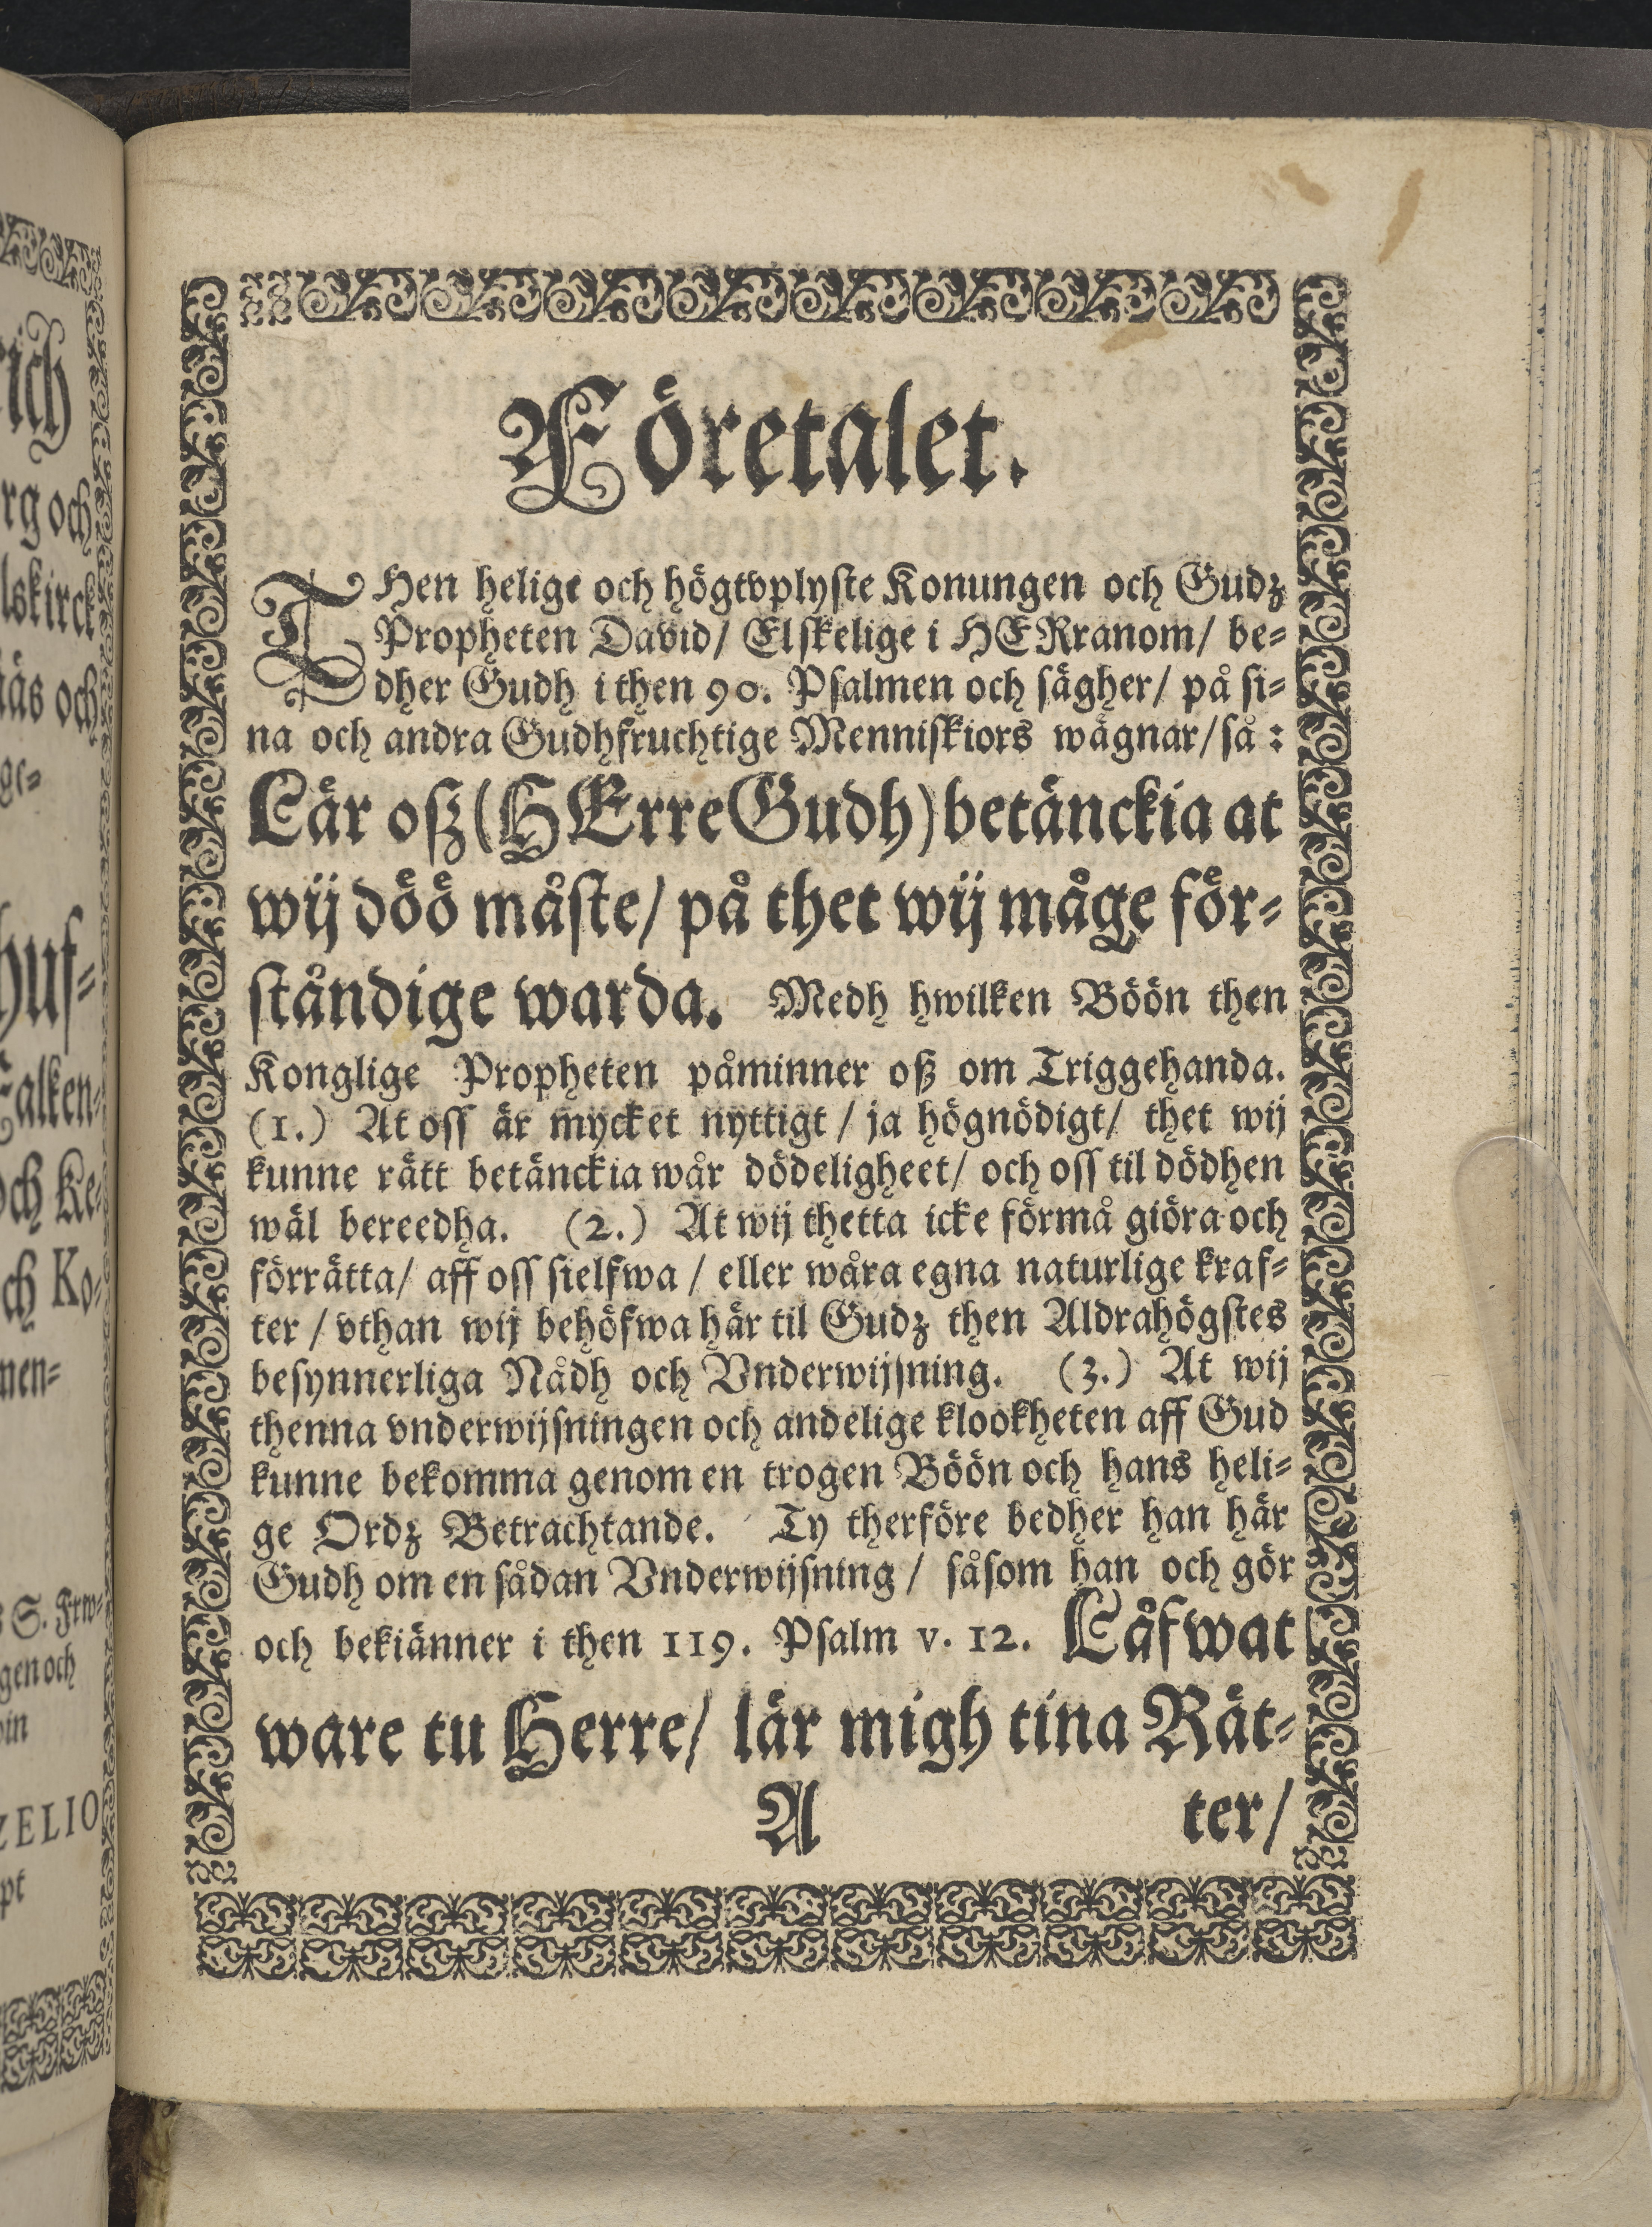 Företalet.
THen helige och högtvplyste Konungen och Gudz
Propheten David/ Elskelige i HERranom/ be-
dher Gudh i then 90. Psalmen och sägher/ på si-
na och andra Gudhfruchtige Menniskiors wägnar/ så:
Lär oß (HErre Gudh) betänckia at
wij döö måste/ på thet wij måge för-
ståndige warda. Medh hwilken Böön then
Konglige Propheten påminner oß om Triggehanda.
(1.) At oss är mycket nyttigt / ja högnödigt/ thet wij
kunne rätt betänckia wår dödeligheet/ och oss til dödhen
wäl bereedha. (2.) At wij thetta icke förmå giöra och
förrätta/ aff oss sielfwa / eller wåra egna naturlige kraf-
ter / vthan wij behöfwa här til Gudz then Aldrahögstes
besynnerliga Nådh och Vnderwijsning. (3.) At wij
thenna vnderwijsningen och andelige klookheten aff Gud
kunne bekomma genom en trogen Böön och hans heli-
ge Ordz Betrachtande. Ty therföre bedher han här
Gudh om en sådan Vnderwijsning / såsom han och gör
och bekiänner i then 119. Psalm v. 12. Låfwat
ware tu Herre/ lär migh tina Rät-
A ter/
rich
rg och
lskirck
äs och
ge-
huf-
Falken-
och Ke-
ch Ko-
men-
S. Frw-
gen och
ZELIO
pt